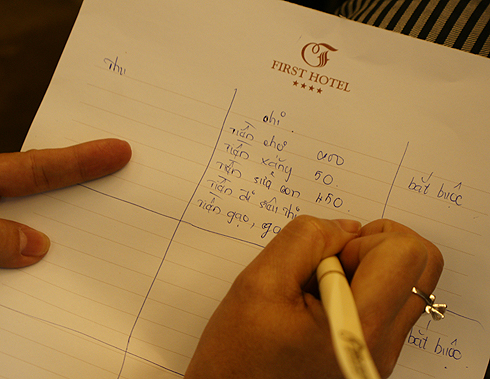 FIRST HOTEL
Thu
chi
tiền chợ 200
tiền xăng 50
tiền sữa con 450
tiền đi siêu thị
tiền gạo, ga
bắt buộc
bắt buộc